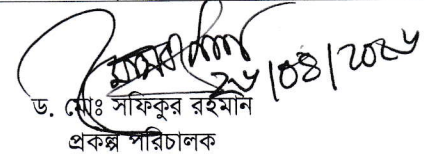 ২৮/০৪/২০২৮
ড. মোঃ সফিকুর রহমান
প্রকল্প পরিচালক